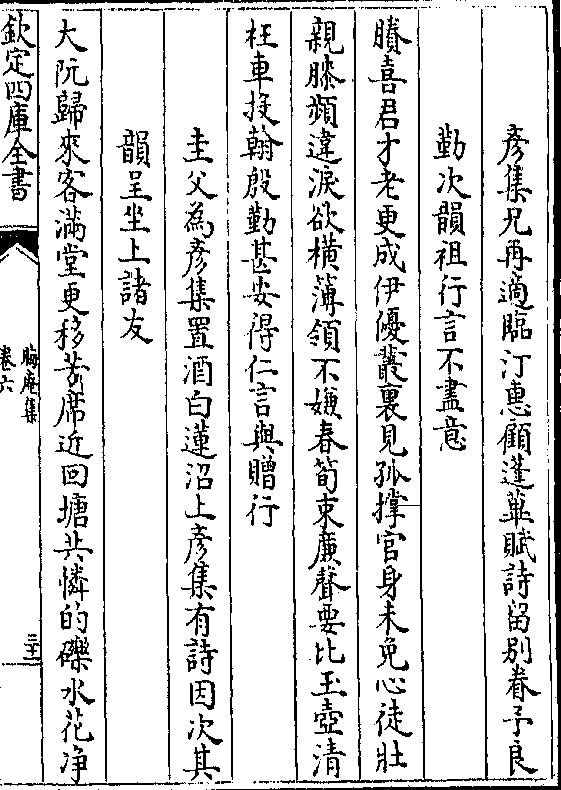 彥集兄再適臨汀惠顧蓬蓽賦詩留別眷予良
勤次韻祖行言不盡意
賸喜君才老更成伊優叢裏見孤撑官身未免心徒壯
親膝頻違淚欲橫薄領不嫌春筍束亷聲要比玉壺清
枉車投翰殷勤甚安得仁言與贈行
圭父為彥集置酒白蓮沼上彥集有詩因次其
韻呈坐上諸友
大阮歸來客滿堂更移芳席近回塘共憐的礫水花净
欽定四庫全書
晦庵集
卷六